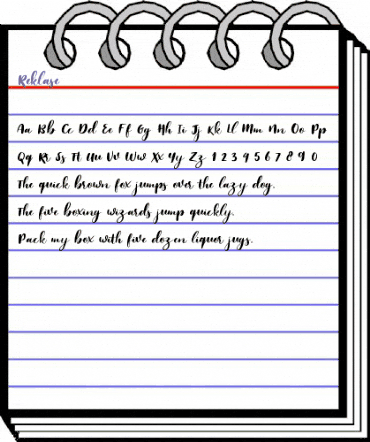 Reklase
Aa Bb Cc Dd Ee Ff Gg Hh Ii Jj Kk Ll Mm Nn Oo Pp
Qq Rr Ss Tt Uu Vv Ww Xx Yy Zz 1 2 3 4 5 6 7 8 9 0
The quick brown fox jumps over the lazy dog.
The five boxing wizards jump quickly.
Pack my box with five dozen liquor jugs.